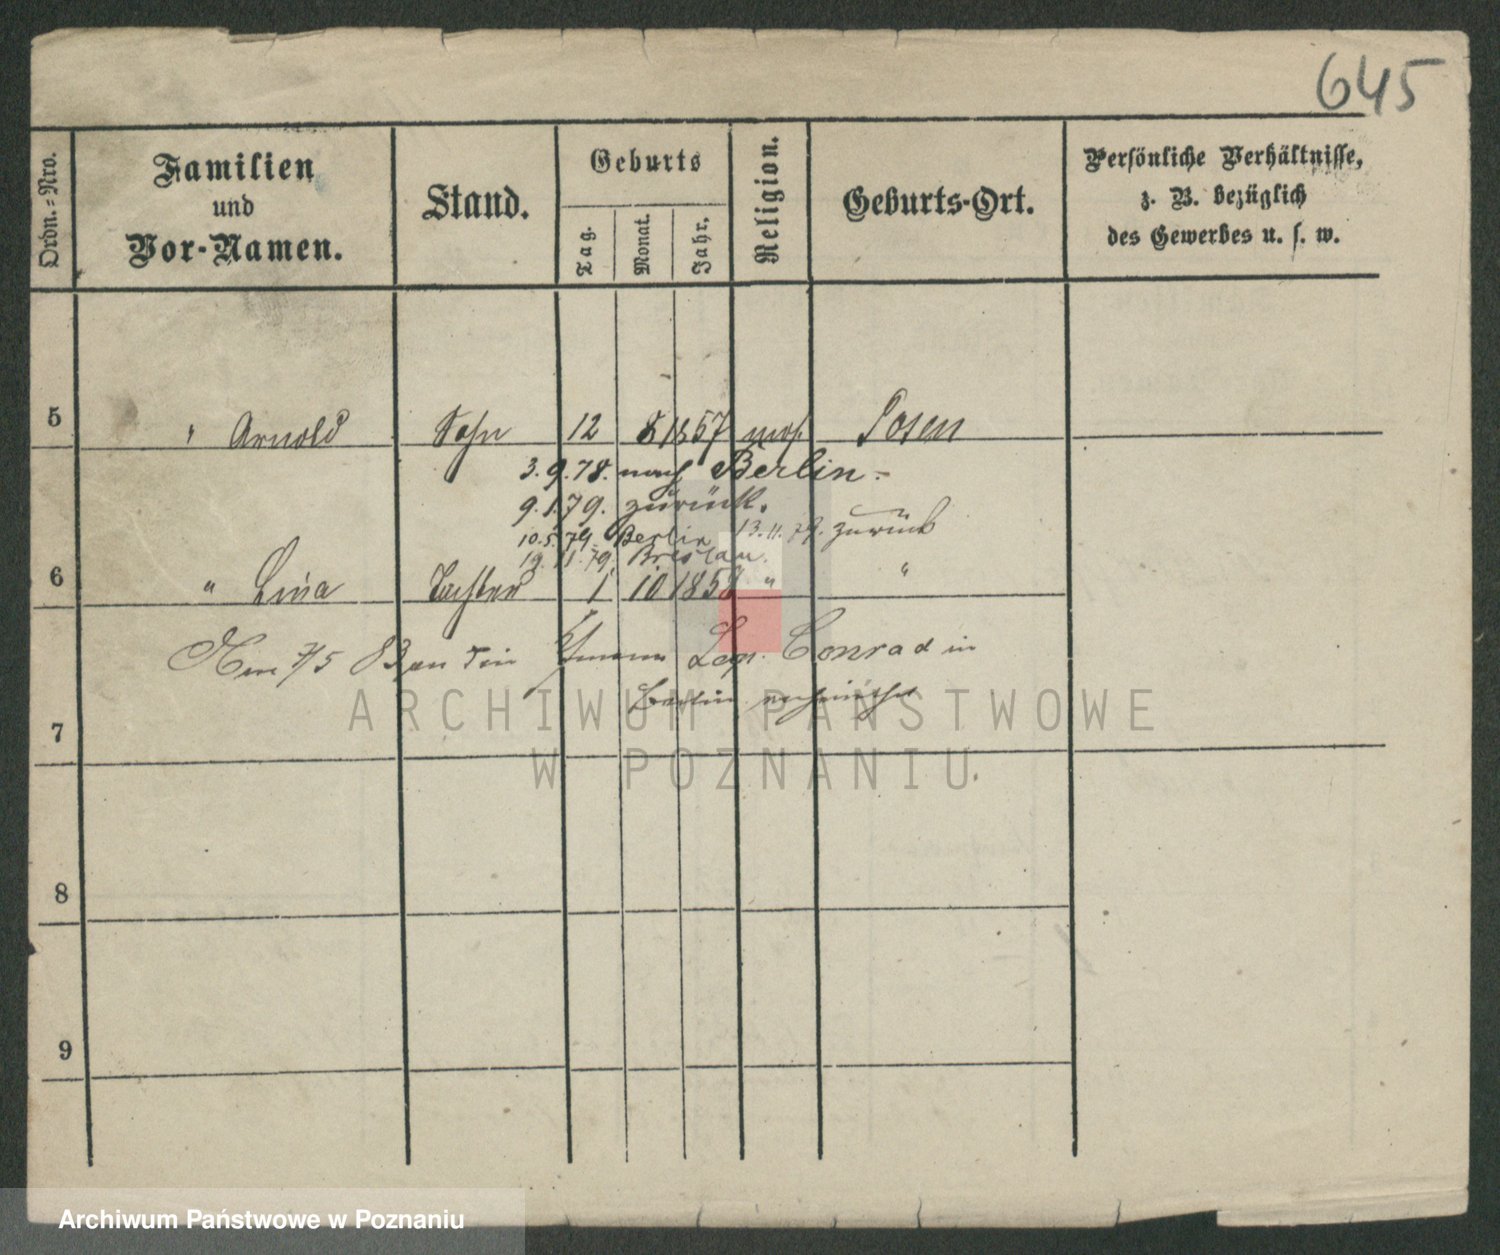 645
Ordn.-Nro.
Familien
und
Vor-Namen.
Stand.
Geburts
Tag.
Monat.
Jahr.
Religion.
Geburts-Ort.
Persönliche Verhältnisse,
z. B. bezüglich
des Gewerbes u. s. w.
5 " Arnold Sohn 12 8 1857 mos. Posen
3.9.78. nach Berlin.
9.1.79. zurück.
10.5.79. Berlin 13.11.79. zurück
19.11.79. Breslau.
6 " Lina Tochter 1 10 1858 " "
Conrad in
Berlin
7
8
9
ARCHIWUM PAŃSTWOWE
W POZNANIU
Archiwum Państwowe w Poznaniu